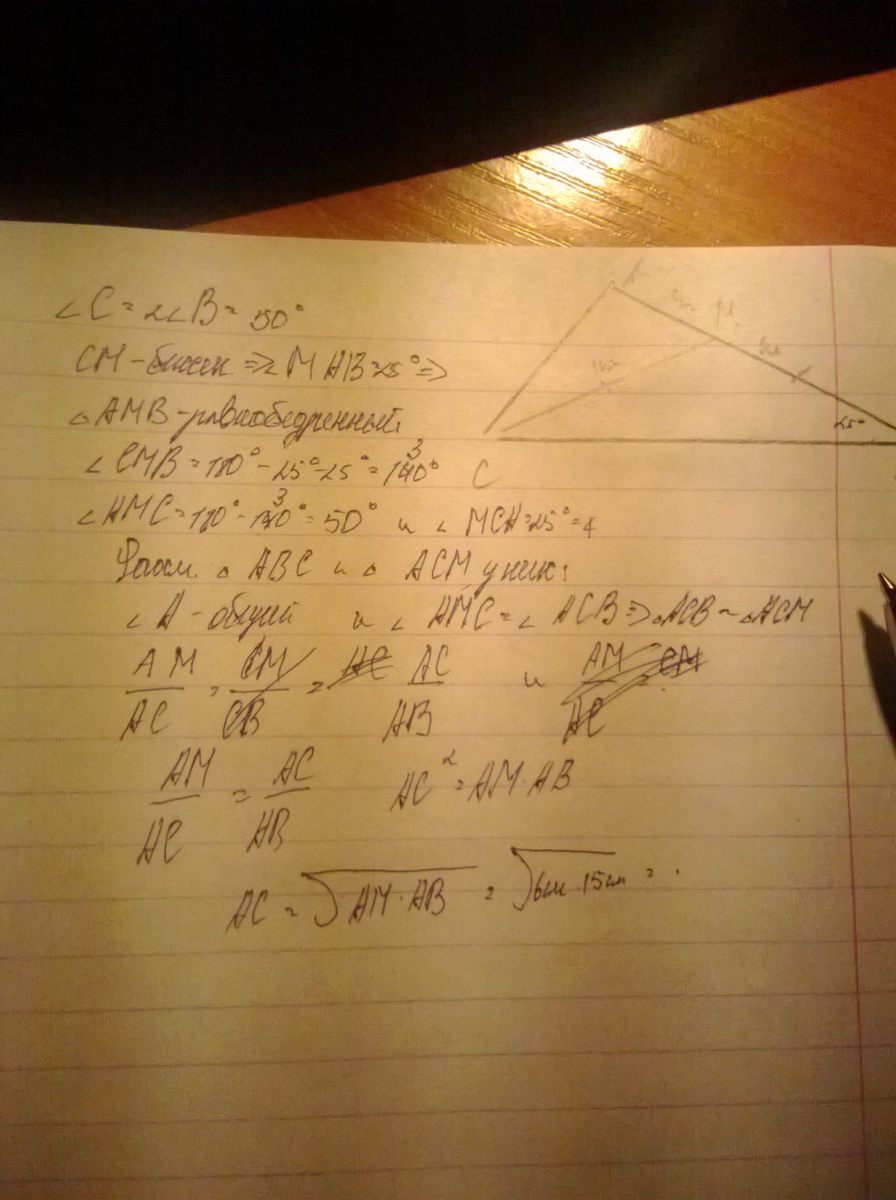 ∠C = 2∠B = 50°
CM - биссек ⇒ ∠MAB = 25° ⇒
△AMB - равнобедренный
∠CMB = 180° - 25° - 25° = 130°
∠AMC = 180° - 130° = 50° и ∠MCA = 25° =
△ABC и △ACM у них:
∠A - общий и ∠AMC = ∠ACB ⇒ △ACB ~ △ACM
AM/AC = CM/CB = AC/AB и AM/AC = CM
AM/AC = AC/AB AC² = AM·AB
AC = √AM·AB = √6см·15см = .
M
25°
C